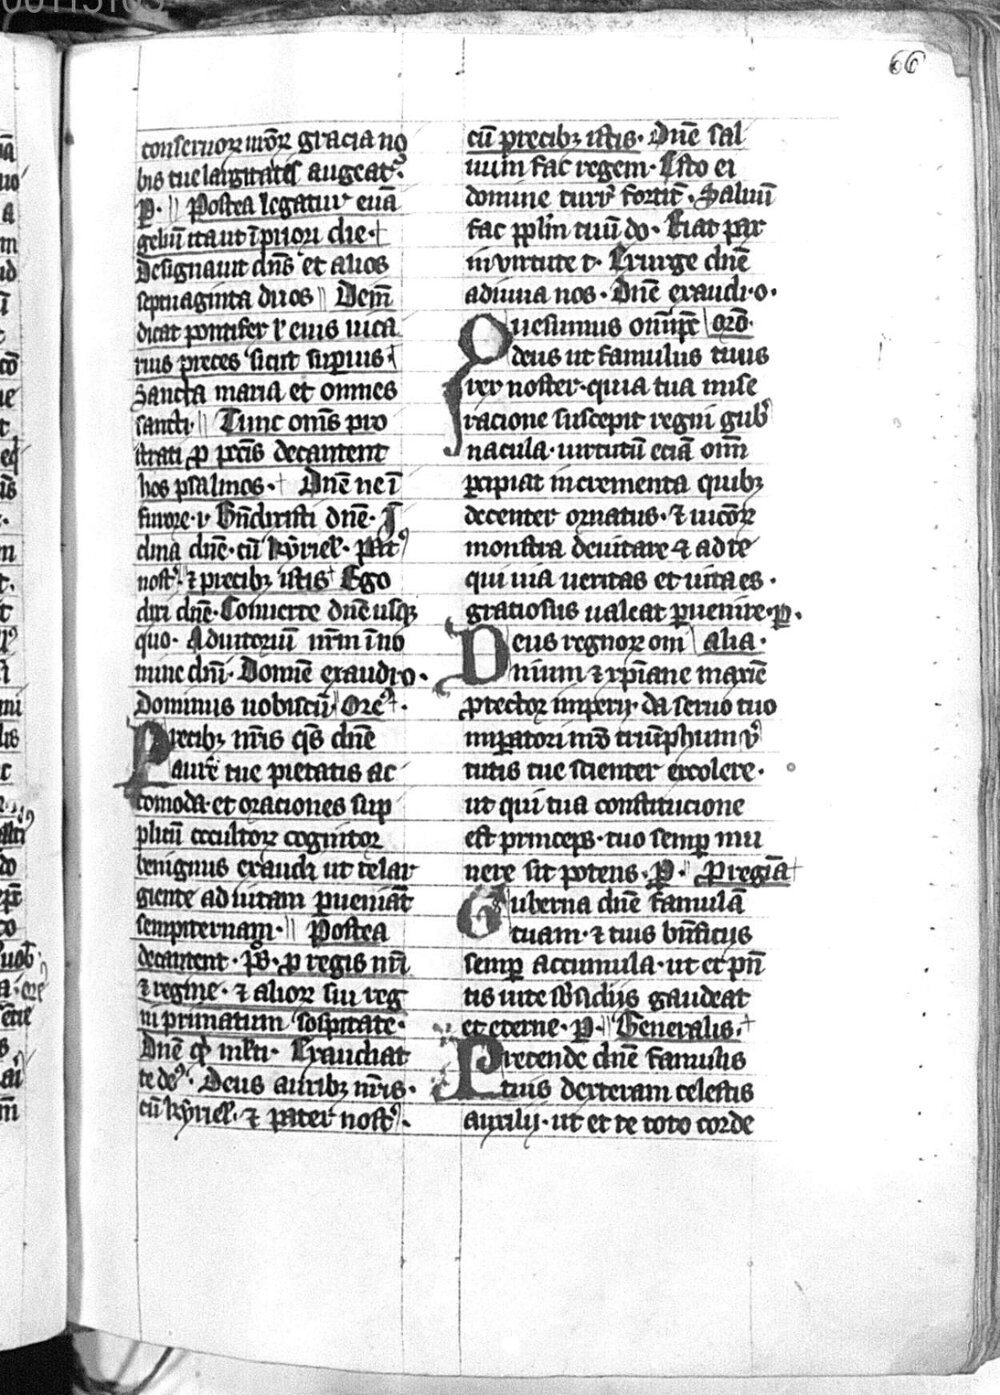 66
conseruoꝝ mõꝝ gracia no
bis tue largitatis augeat᷑.
P. Postea legatur euã
geliũ ita ut ĩ priori die.
Designauit dñs et alios
septuaginta duos Deiñ
dicat pontifex ł eius uica
rius preces sicut superius
Sancta maria et omnes
sancti. Tunc om̃s pro
strati ꝓ pacis decantent
hos psalmos. Dñe ne ĩ
furore. Bñdixisti dñe. 
clina dñe. cũ kyriel. Pat̉
nost̉. ⁊ precibꝫ istis Ego
dixi dñe. Conuerte dñe usqꝫ
quo. Adiutoriũ nr̃m ĩ no
mine dñi. Domine exaudi o.
Dominus uobiscũ Ore᷒.
Precibꝫ nr̃is q̃s dñe
aurẽ tue pietatis ac
comoda. et oraciones sup
plicũ occultoꝝ cognitor
benignus exaudi ut te lar
giente ad uitam ꝑueniãt
sempiternam. Postea
decantent. p̃s. ꝓ regis nr̃i
⁊ regine. ⁊ alioꝝ sui reg
ni primatum sospitate.
Dñe ꝙ ml̃ti. Exaudiat
te de᷒. Deus auribꝫ nr̃is.
cũ kyriel. ⁊ pater nost̉.
cũ precibꝫ istis. Dñe sal
uum fac regem. Esto ei
domine turr̉ fortit̃. Saluũ
fac ppl̃m tuũ do. Fiat pax
in uirtute t. Exurge dñe
adiuua nos. Dñe exaudi o.
Quesumus om̃ips̃ oro᷒.
deus ut famulus tuus
rex noster. quia tua mise
racione suscepit regni gub̉
nacula. uirtutũ eciã om̃
ꝑcipiat incrementa quibꝫ
decenter ornatus. ⁊ uicioꝝ
monstra deuitare ⁊ ad te
qui uia ueritas et uita es.
gratiosus ualeat ꝑuenire. P.
Deus regnoꝝ om alia.
nium ⁊ xp̃iane maxĩe
ꝓtector imperij. da seruo tuo
imꝑatori nr̃o triũphum u̾
tutis tue scienter excolere.
ut qui tua constitucione
est princeps. tuo semꝑ mu
nere sit potens. P. P regiã
Guberna dñe famulã
tuam. ⁊ tuis bñficijs
semꝑ accumula. ut et p̃n
tis uite sb̃sidijs gaudeat
et eterne. P. Generalis.
Pretende dñe famulis
tuis dexteram celestis
auxilij. ut et te toto corde